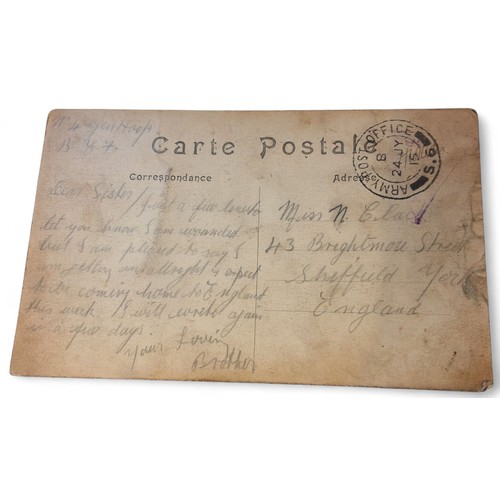 Carte Postale
Correspondance
Adresse
ARMY POST OFFICE
B
24 JY
15
S.6
Dear Sister / Just a few lines to
let you know I am wounded
but I am pleased to say I
am getting on allright I expect
to be coming home to England
this week. I will write again
in a few days.
Your Loving
Brother
Miss N.
43 Brightmore Street
Sheffield York
England